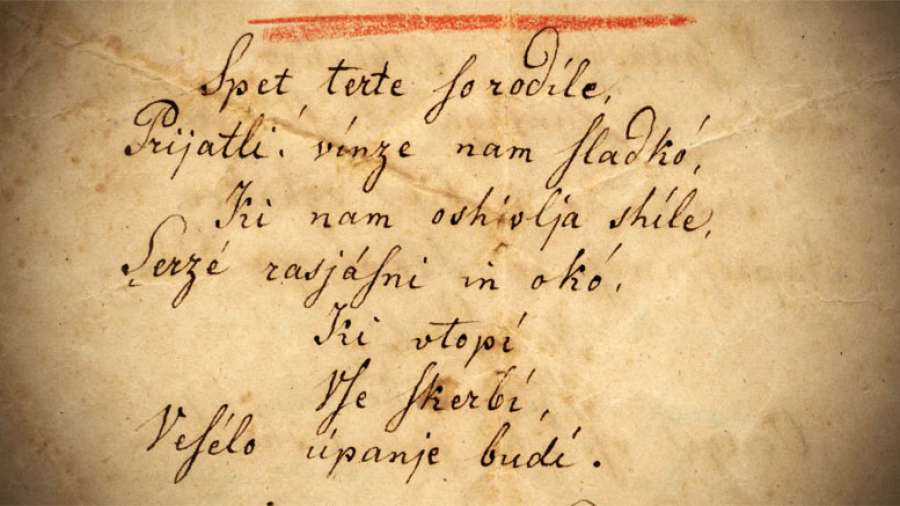 Spet terte so rodíle,
Prijatli! vínze nam sladkó,
Ki nam oshívlja shíle,
Serzé rasjásni in okó,
Ki vtopí
Vse skerbí,
Vesélo úpanje budí.